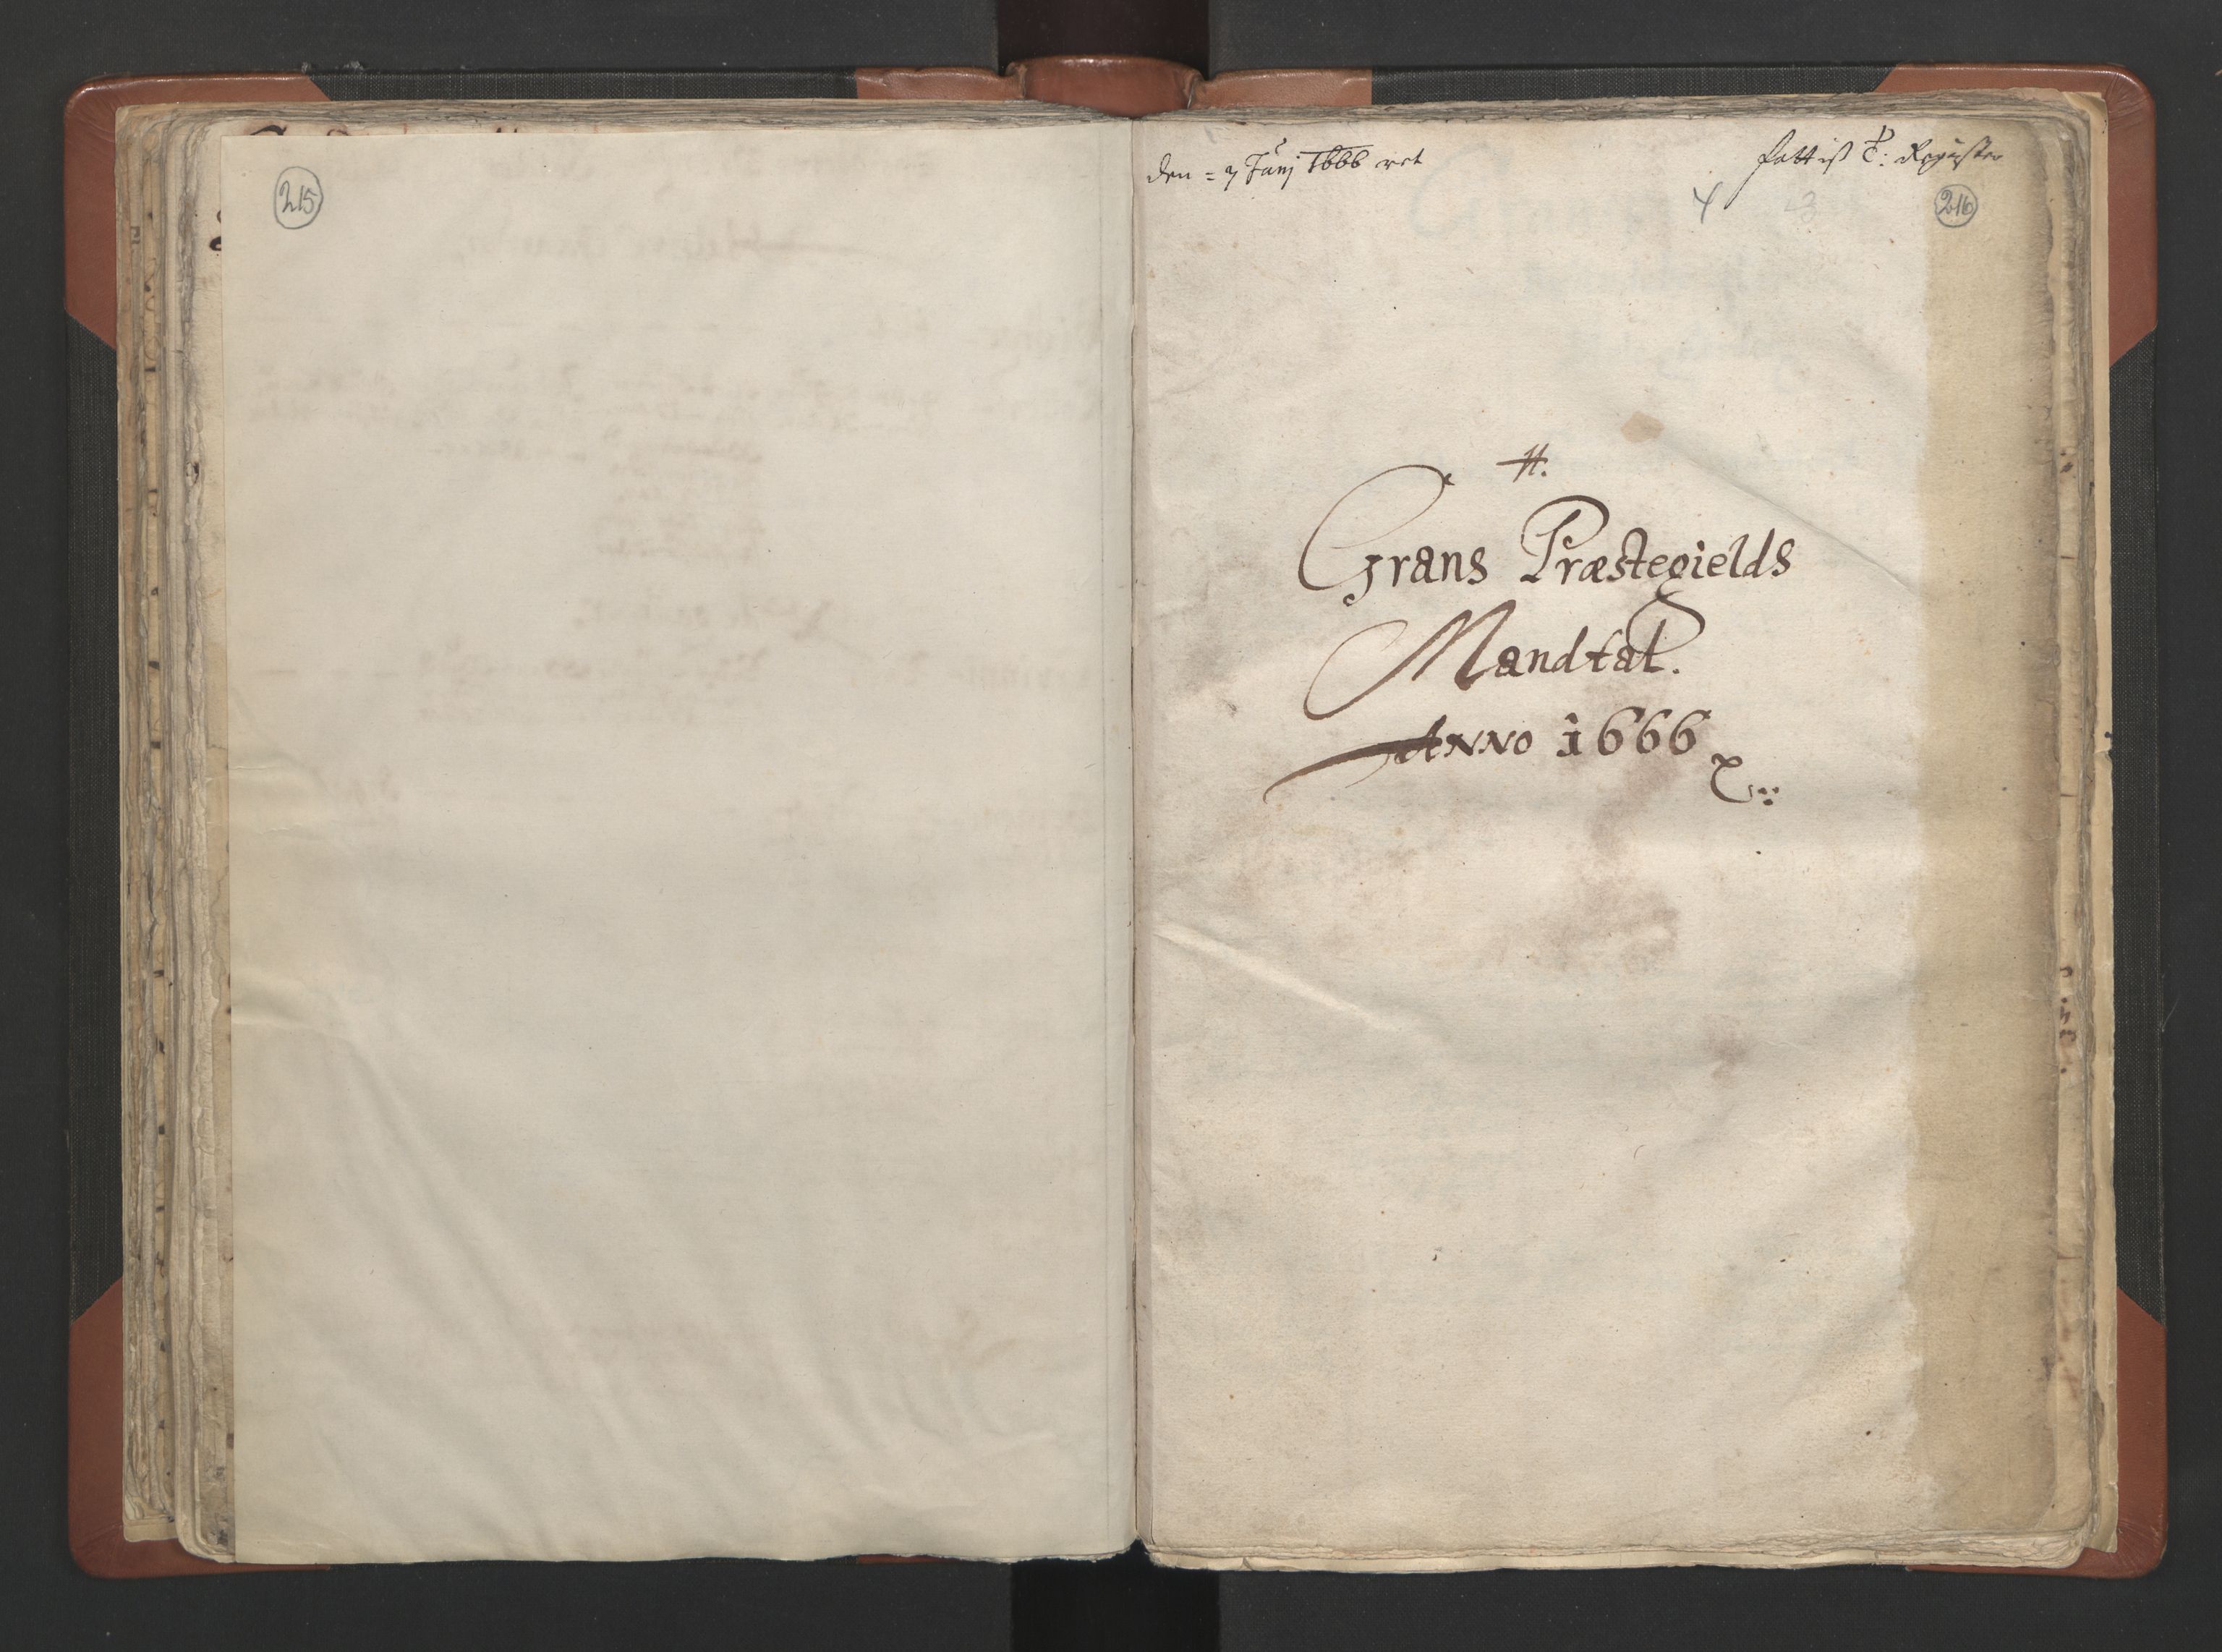 215
Den = 7 Junj 1666
Register
4
216
H.
Grans Præstegields
Mandtal.
Anno 1666